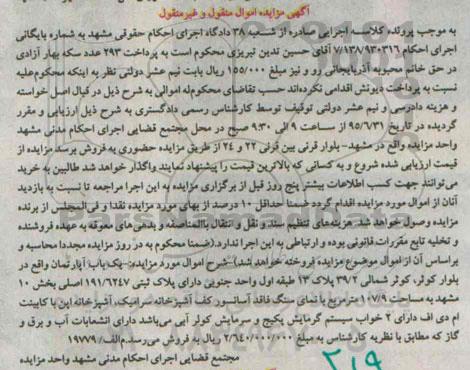 آگهی مزایده اموال منقول و غیرمنقول
به موجب پرونده کلاسه اجرایی صادره از شعبه ۳۸ دادگاه اجرای احکام حقوقی مشهد به شماره بایگانی
اجرای احکام ۷/۱۳۸/۹۳۰۳۱۶ آقای حسین تدین تبریزی محکوم است به پرداخت ۲۹۳ عدد سکه بهار آزادی
در حق خانم محبوبه آذربایجانی رو و نیز مبلغ ۱۵۵/۰۰۰ ریال بابت نیم عشر دولتی نظر به اینکه محکوم‌علیه
نسبت به پرداخت دیونش اقدامی نکرده‌اند حسب تقاضای محکوم‌له اموالی به شرح ذیل در قبال اصل خواسته
و هزینه دادرسی و نیم عشر دولتی توقیف توسط کارشناس رسمی دادگستری به شرح ذیل ارزیابی و مقرر
گردیده در تاریخ ۹۵/۶/۳۱ از ساعت ۹ الی ۹:۳۰ صبح در محل مجتمع قضایی اجرای احکام مدنی مشهد
واحد مزایده واقع در مشهد- بلوار قرنی بین قرنی ۲۲ و ۲۴ از طریق مزایده حضوری به فروش برسد مزایده از
قیمت ارزیابی شده شروع و به کسانی که بالاترین قیمت را پیشنهاد نمایند واگذار خواهد شد طالبین به خرید
می‌توانند جهت کسب اطلاعات بیشتر پنج روز قبل از برگزاری مزایده به این اجرا مراجعه تا نسبت به بازدید
آنان از اموال مورد مزایده اقدام گردد ضمنا حداقل ۱۰ درصد از بهای مورد مزایده نقدا و فی‌المجلس از برنده
مزایده وصول خواهد شد. هزینه‌های تنظیم سند و نقل و انتقال بالمناصفه و بدهی های معوقه به عهده فروشنده
و تخلیه تابع مقررات قانونی بوده و ارتباطی به این اجرا ندارد.(ضمنا محکوم به در روز مزایده مجددا محاسبه و
براساس آن از اموال موضوع مزایده فروخته خواهد شد) شرح اموال مورد مزایده:-یک باب آپارتمان واقع در
بلوار کوثر، کوثر شمالی ۳۹/۲ پلاک ۱۳ طبقه اول واحد جنوبی دارای پلاک ثبتی ۱۹۱/۶۲۴۷ اصلی بخش ۱۰
مشهد به مساحت ۱۰۷/۹ مترمربع با نمای سنگ فاقد آسانسور کف آشپزخانه سرامیک، آشپزخانه اپن با کابینت
ام دی اف دارای ۲ خواب سیستم گرمایش پکیج و سرمایش کولر آبی می‌باشد دارای انشعابات آب و برق و
گاز که مطابق با نظریه کارشناس به مبلغ ۲/۶۴۰/۰۰۰/۰۰۰ ریال به فروش می‌رسد.م‌الف/ ۱۹۷۷۹
مجتمع قضایی اجرای احکام مدنی مشهد واحد مزایده
۲۱۹
ParsNamadData